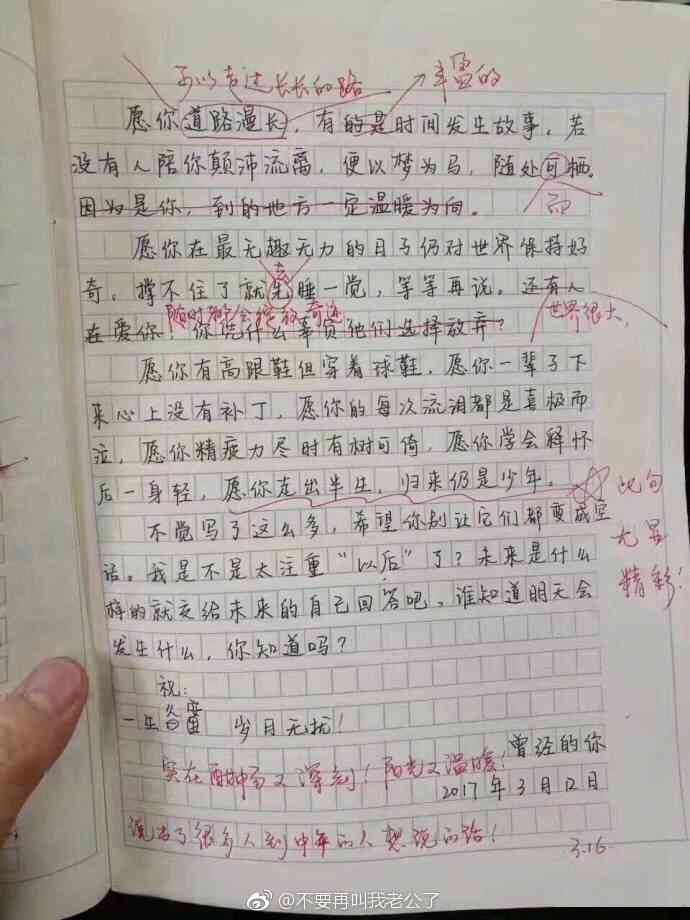 可以走过长长的路 丰富的
愿你道路漫长，有的是时间发生故事。若
没有人陪你颠沛流离，便以梦为马，随处可栖。
因为是你，到的地方一定温暖为向。 而
愿你在最无趣无力的日子仍对世界保持好
去
奇。撑不住了就先睡一觉，等等再说。还有人
随时都会绽放奇迹
在爱你！你凭什么辜负他们选择放弃？ 世界很大，
愿你有高跟鞋但穿着球鞋，愿你一辈子下
来心上没有补丁，愿你的每次流泪都是喜极而
泣，愿你精疲力尽时有树可倚，愿你学会释怀
后一身轻，愿你走出半生，归来仍是少年。 此句
不觉写了这么多，希望你别让它们都变成空 尤显
话。我是不是太注重“以后”了？未来是什么 精彩！
样的就交给未来的自己回答吧，谁知道明天会
发生什么，你知道吗？
祝：
一生 岁月无扰！
曾经的你
实在 而又深刻！阳光又温暖！
2017年3月12日
说出了很多人到中年的人想说的话！
3.16
@不要再叫我老公了